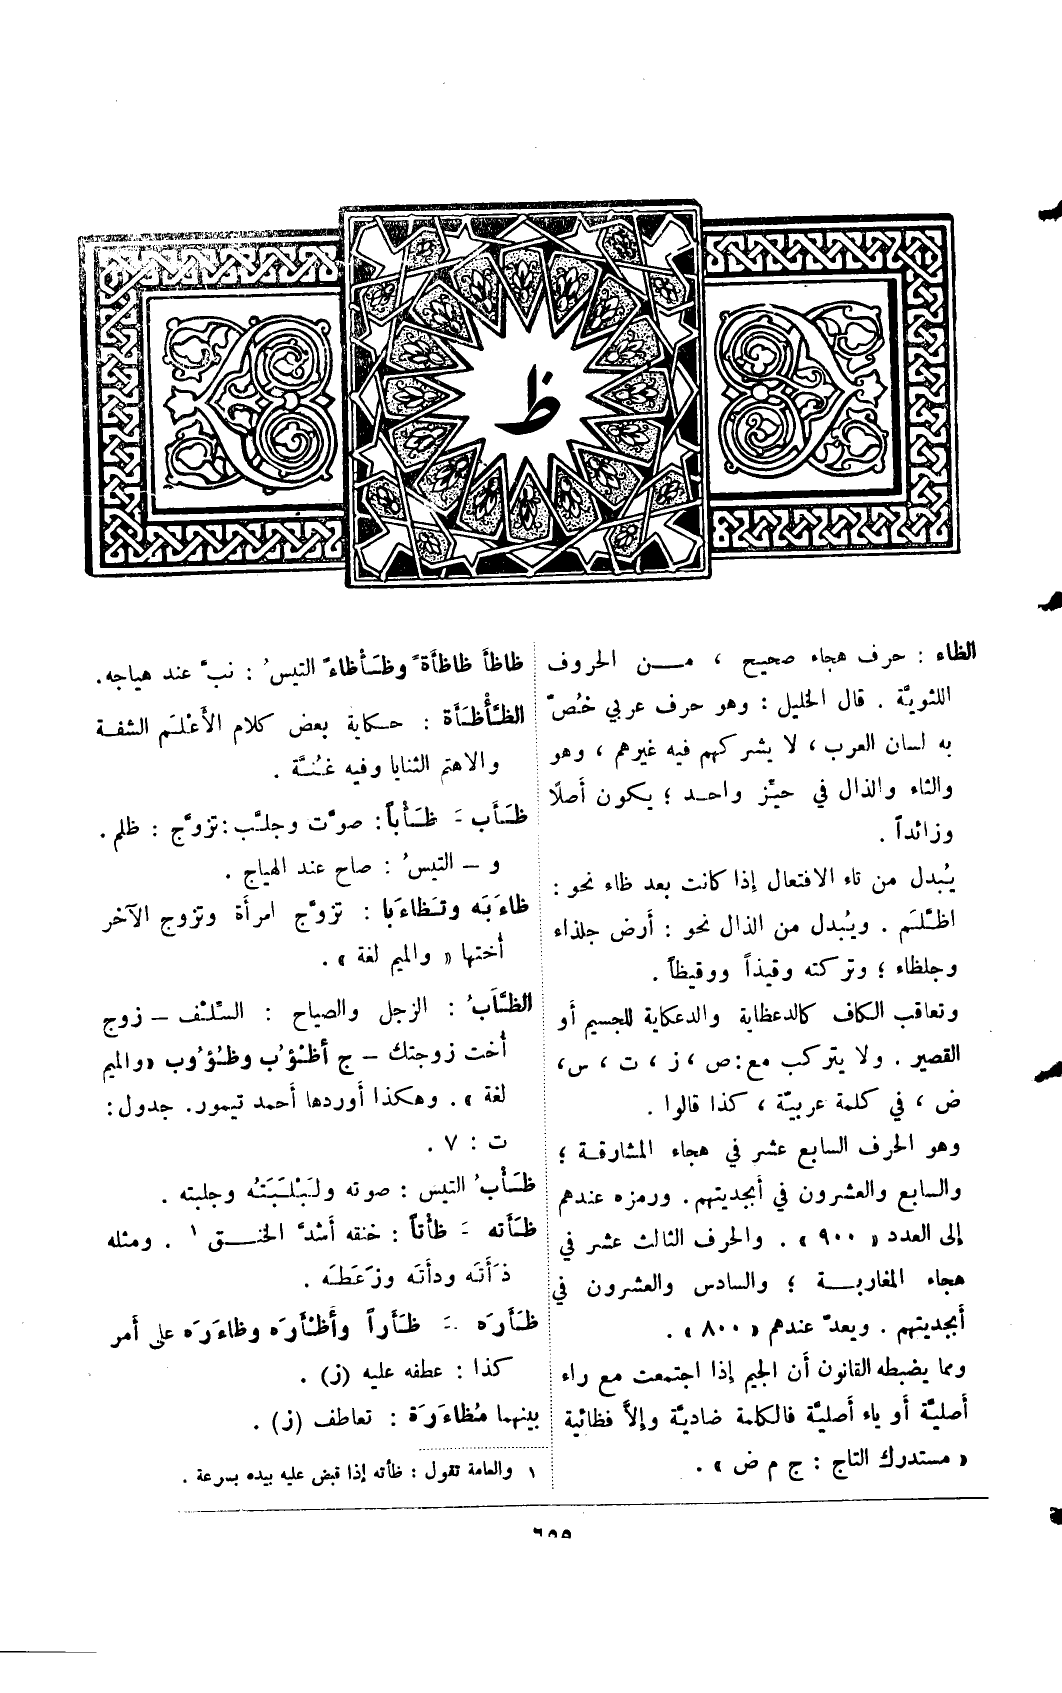 ظ
الظاء : حرف هجاء صحيح ، مـن الحروف
اللثويَّة . قال الخليل : وهو حرف عربي خُصَّ
به لسان العرب ، لا يشركهم فيه غيرهم ، وهو
والثاء والذال في حيّز واحد ؛ يكون أصلًا
وزائداً .
يُبدل من تاء الافتعال إذا كانت بعد ظاء نحو :
اظَّلَم . ويُبدل من الذال نحو : أرض جلذاء
وجلظاء ؛ وتركته وقيذاً ووقيظاً .
وتعاقب الكاف كالدعظاية والدعكاية للجسيم أو
القصير . ولا يتركب مع : ص ، ز ، ت ، س ،
ض ، في كلمة عربيّة ، كذا قالوا .
وهو الحرف السابع عشر في هجاء المشارقـة ؛
والسابع والعشرون في أبجديتهم . ورمزه عندهم
إلى العدد « ٩٠٠ » . والحرف الثالث عشر في
هجاء المغاربـة ؛ والسادس والعشرون في
أبجديتهم . ويعدّ عندهم « ٨٠٠ » .
ومما يضبطه القانون أن الجيم إذا اجتمعت مع راء
أصليَّة أو ياء أصليَّة فالكلمة ضاديَّة وإلاَّ فظائية
« مستدرك التاج : ج م ض » .
ظاظأ ظاظأةً وظَأْظاءً التيسُ : نبَّ عند هياجه .
الظَّأْظَأَة : حـكاية بعض كلام الأَعْلَم الشفـة
والاهتم الثنايا وفيه غُنَّة .
ظَأَب َ ظَأْباً : صوَّت وجلَّب : تزوَّج : ظلم .
و – التيسُ : صاح عند الهياج .
ظاءَبَه وتَظاءَبا : تزوَّج امرأة وتزوج الآخر
أختها « والميم لغة » .
الظَّأَبُ : الزجل والصياح : السِّلْف – زوج
أخت زوجتك – ج أظْؤُب وظُؤُوب « والميم
لغة » . وهكذا أوردها أحمد تيمور . جدول :
ت : ٧ .
ظَأْبُ التيس : صوته ولَبْلَبَتُه وجلبته .
ظَأَته َ ظأتاً : خنقه أشدَّ الخنـق ١ . ومثله
ذَأَتَه ودأتَه وزَعَطَه .
ظَأَرَه َ ظَأَراً وأظْأَرَه وظاءَرَه على أمر
كذا : عطفه عليه (ز) .
بينهما مُظاءَرَة : تعاطف (ز) .
١ والعامة تقول : ظأته إذا قبض عليه بيده بسرعة .
٦٥٥